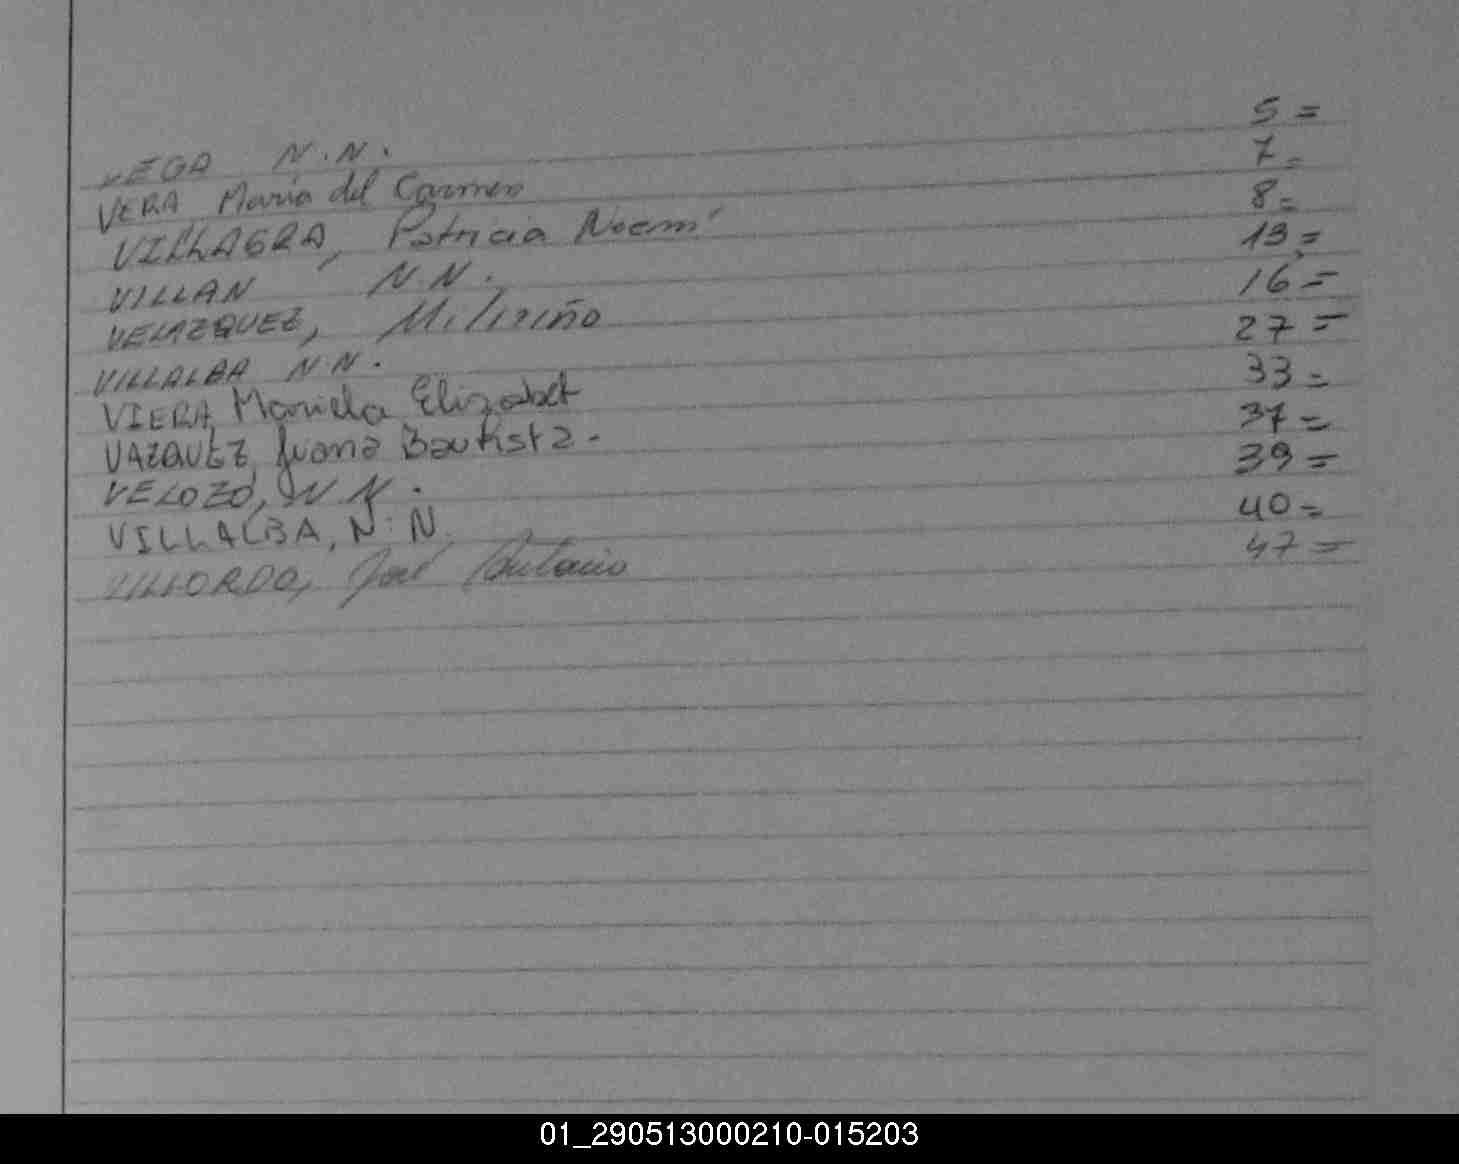 VEGA N.N. 5=
VERA, María del Carmen 7=
VILLAGRA, Patricia Noemí 8=
VILLAN N.N. 13=
VELAZQUEZ, 16=
VILLALBA N.N. 27=
VIERA, Mariela Elizabet 33=
VAZQUEZ, Juana Bautista - 37=
VELOZO, N N. 39=
VILLALBA, N.N. 40=
VILLORDO, José Antonio 47=
01_290513000210-015203